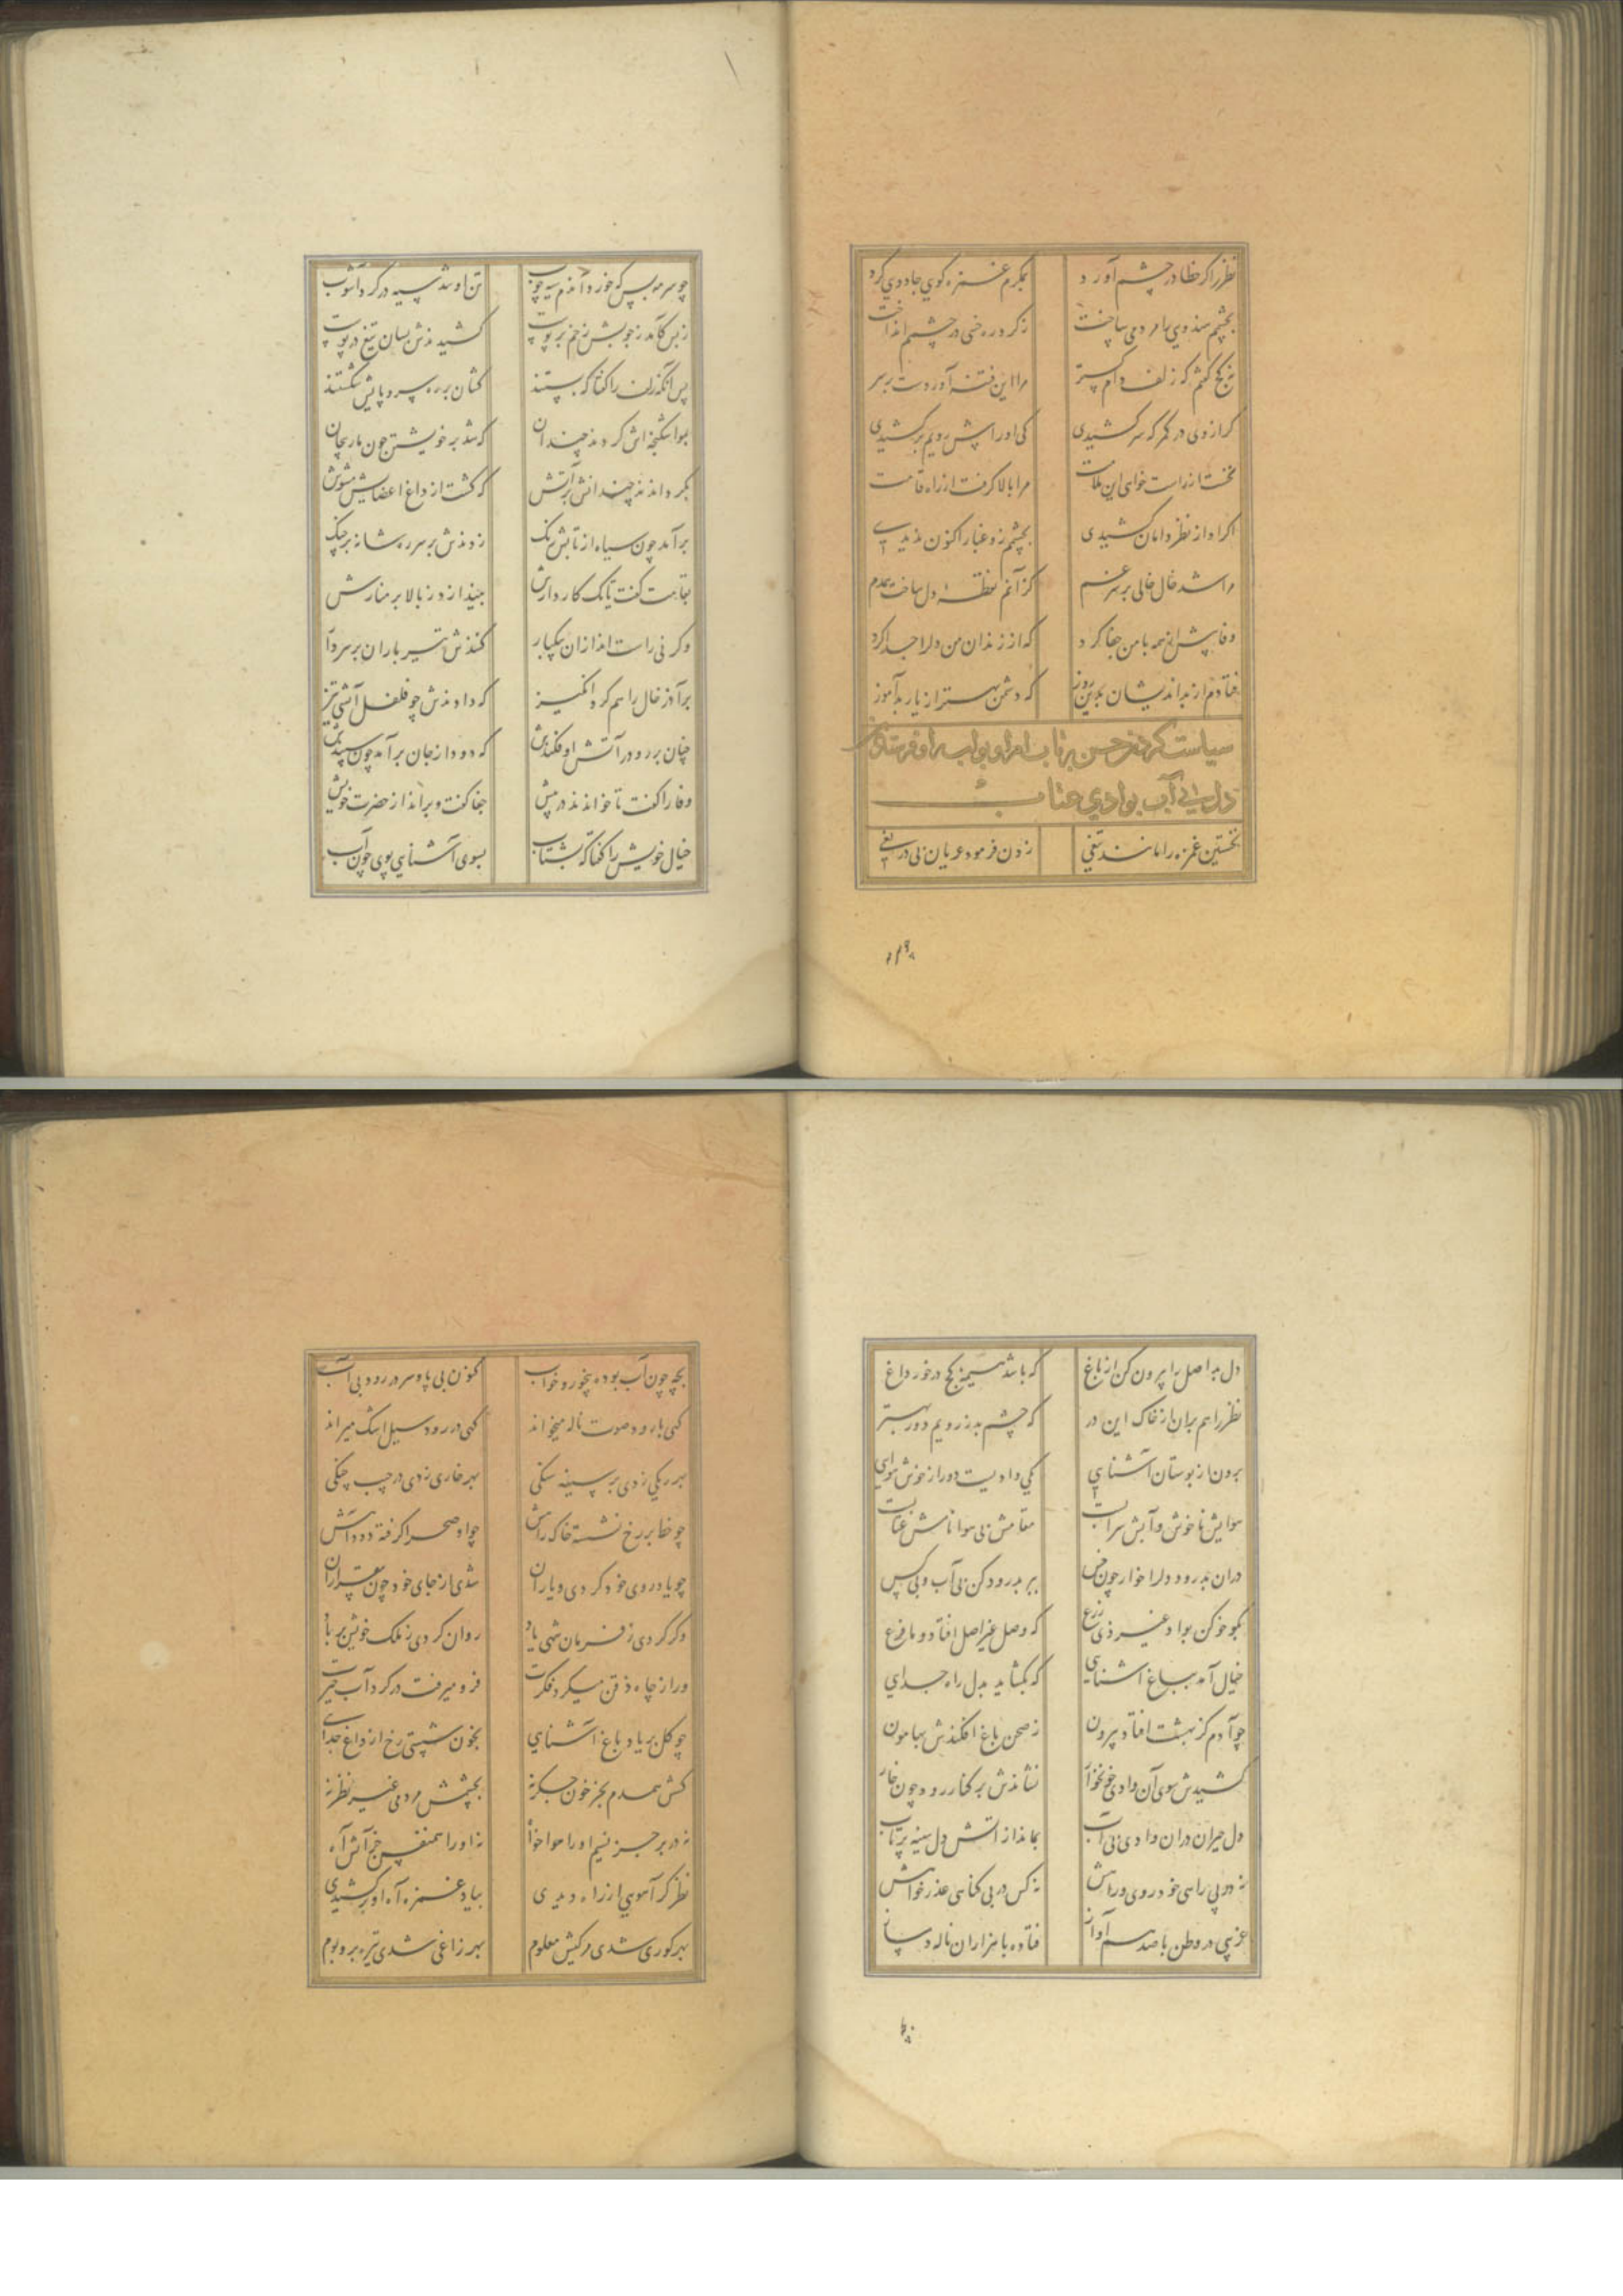 نظر را کر خطا در چشم آورد بمکرم غمزه کوی جادویی کرد
بچشم هندویی را مردمی ساخت ز کرد ره خسی در چشم انداخت
کژ کج کنم که زلف دام کستر مرا این فتنه آوردست بر سر
کر ازوی در کمر که سر کشیدی کی او را پیش رویم برکشیدی
نخست از راست خواهی این ملامت مرا بالا کرفت از راه قامت
اکر او از نظر دامان کشیدی بچشم زو غبار اکنون ندیدی
مرا شد خال خالی بر سر غم کز آنم نقطه دل ساخت همدم
وفا پیش از همه با من جفا کرد که از زندان من دلرا جدا کرد
فتادم از بداندیشان بدین روز که دشمن بهتر از یار بدآموز
سیاست کردن حسن پرتاب امرا و نواب را و فرستادن
دل بی آب بوادی عتاب
نخستین غمزه را مانند تیغی زدن فرمود عریان بی دریغی
چو سر مو بس که خورد اندام سیه چوب تن او شد سیه در کرد آشوب
ز بس کآمد ز چوبش زخم بر پوست کشیدندش بسان تیغ در پوست
پس آنکه زلف را کفتا که بستند کشان بر ره سر و پایش شکستند
هوا شکنجه اش کردند چندان که شد بر خویشتن چون مار پیچان
بکرداندند چندانش بر آتش که کشت از داغ اعضایش مشوش
برآمد چون سیاه از تابش رنک زدندش بر سر ره شانه بر چنک
بقامت کفت تا یک کار دارش بیندازد ز بالا بر منارش
وکر نی راست اندازان بیکبار کنندش تیر باران بر سر دار
برآذر خال را هم کرد انکیز که دادندش چو فلفل آتشی تیز
چنان بر رو در آتش اوفکندش که دود از جان برآمد چون سپندش
وفا را کفت تا خواندند در پیش جفا کفت و براند از حضرت خویش
خیال خویش را کفتا که بشتاب بسوی آشنایی پوی چون آب
دل بد اصل را بیرون کن از باغ که باشد هیمه کج در خور داغ
نظر را هم بران از خاک این در که چشم بد ز رویم دور بهتر
برون از بوستان آشنایی یکی وادیست دور از خوش هوایی
هوایش ناخوش و آبش سرابست مقامش بی هوا نامش عتابست
در آن بدرود دلرا خوار چون خس ببر بدرود کن بی آب و بی کس
بکو خو کن بواد غیر ذی زرع که وصل غیر اصل افتاد و ما فرع
خیال آمد بباغ آشنایی که بکشاید بدل راه جدایی
چو آدم کز بهشت افتاد بیرون ز صحن باغ افکندش بهامون
کشیدش سوی آن وادی خونخوار نشاندش بر کنار رود چون خار
دل حیران در آن وادی بی آب بماند از آتش دل سینه پرتاب
نه در پی راهی خود روی و راهش نه کس در بی کناهی عذر خواهش
غریبی در وطن با صد سر آواز فتاده با هزاران ناله دمساز
بچه چون آب بوده بیخور و خواب کنون بی پا و سر در رود بی آب
کهی با رود صوت ناله میخواند کهی در رود سیل اشک میراند
بهر ریکی زدی بر سینه سنکی بهر خاری زدی در جیب چنکی
چو خطا بر رخ نشسته خاک راهش چو او صحرا کرفته دود آهش
چو یاد روی خود کردی و یاران شدی از جای خود چون بیقراران
وکر کردی ز فرمان شهی یاد روان کردی ز ملک خویش بر باد
ور از چاه ذقن میکرد فکرت فرو میرفت در کرداب حیرت
چو کل بر یاد باغ آشنایی بخون شستی رخ از داغ جدایی
کش همدم بجز خون جکر نه بچشمش مردمی غیر نظر نه
نه در بر جز نسیم او را هواخواه نه او را همنفس جز آتش آه
نظر کر آهویی از راه دیدی بیاد غمزه آه او برکشیدی
بهر کوری شدی مرکیش معلوم بهر زاغی شدی تیره برو بوم